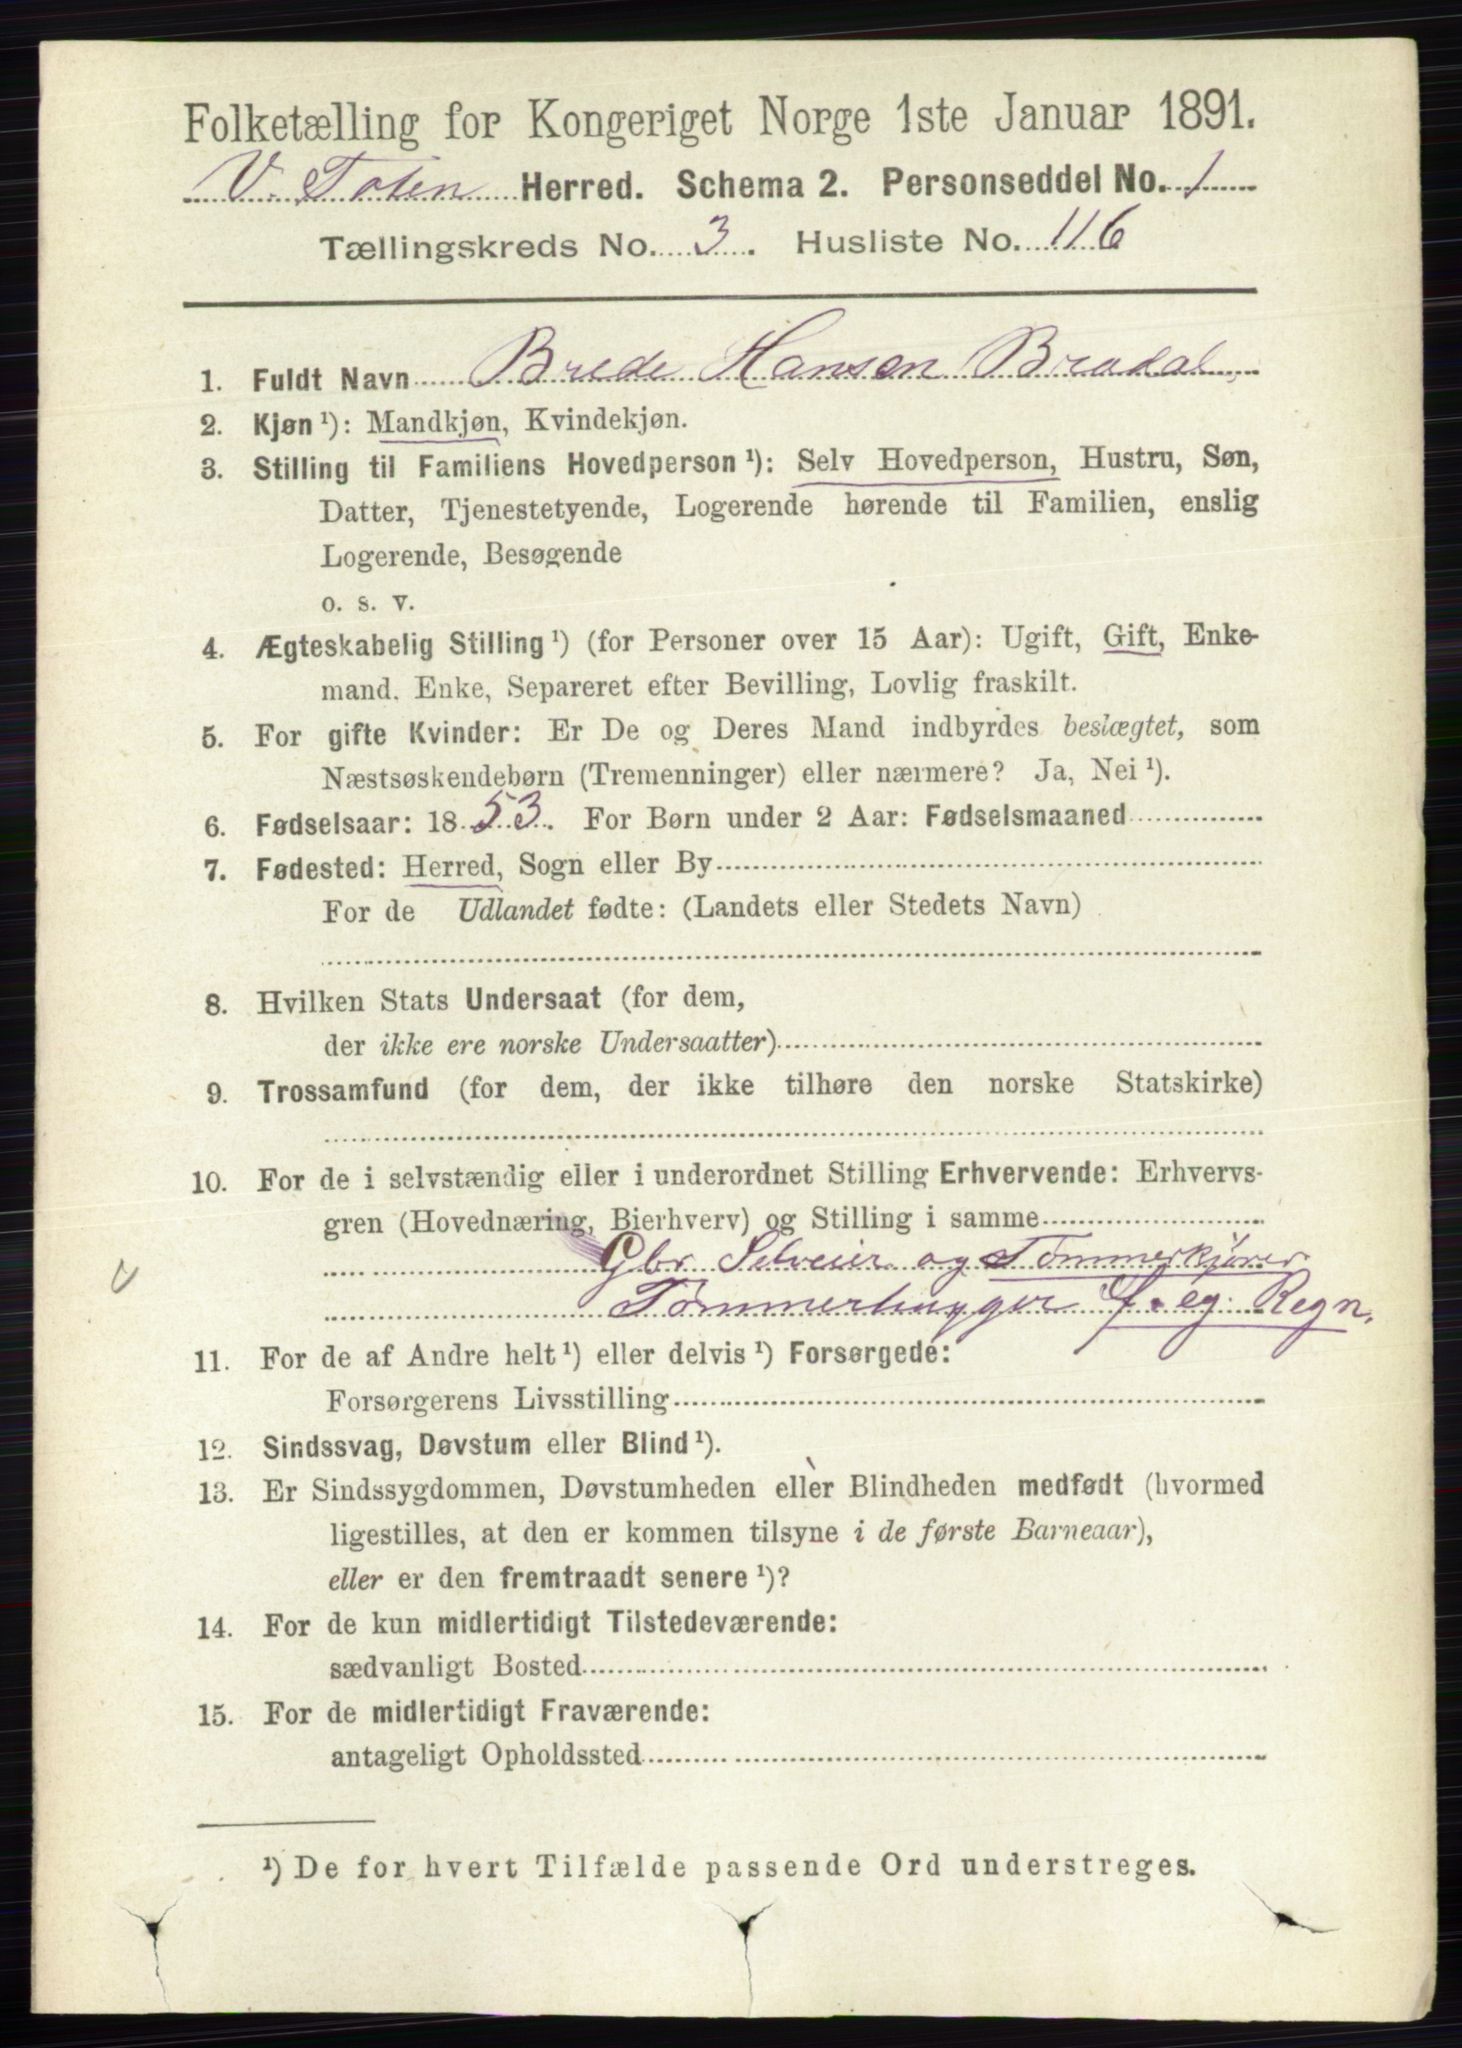 Folketælling for Kongeriget Norge 1ste Januar 1891.
V. Toten Herred. Schema 2. Personseddel No. 1
Tællingskreds No. 3. Husliste No. 116
1. Fuldt Navn Brede Hansen Bradal
2. Kjøn ¹): Mandkjøn, Kvindekjøn.
3. Stilling til Familiens Hovedperson ¹): Selv Hovedperson, Hustru, Søn,
Datter, Tjenestetyende, Logerende hørende til Familien, enslig
Logerende, Besøgende
o. s. v.
4. Ægteskabelig Stilling ¹) (for Personer over 15 Aar): Ugift, Gift, Enke-
mand. Enke, Separeret efter Bevilling, Lovlig fraskilt.
5. For gifte Kvinder: Er De og Deres Mand indbyrdes beslægtet, som
Næstsøskendebørn (Tremenninger) eller nærmere? Ja, Nei ¹).
6. Fødselsaar: 1853. For Børn under 2 Aar: Fødselsmaaned
7. Fødested: Herred, Sogn eller By
For de Udlandet fødte: (Landets eller Stedets Navn)
8. Hvilken Stats Undersaat (for dem,
der ikke ere norske Undersaatter)
9. Trossamfund (for dem, der ikke tilhøre den norske Statskirke)
10. For de i selvstændig eller i underordnet Stilling Erhvervende: Erhvervs-
gren (Hovednæring, Bierhverv) og Stilling i samme
Gbr. Selveier og Tømmerkjører
Tømmerhugger f. eg. Regn.
11. For de af Andre helt ¹) eller delvis ¹) Forsørgede:
Forsørgerens Livsstilling
12. Sindssvag, Døvstum eller Blind ¹).
13. Er Sindssygdommen, Døvstumheden eller Blindheden medfødt (hvormed
ligestilles, at den er kommen tilsyne i de første Barneaar),
eller er den fremtraadt senere ¹)?
14. For de kun midlertidigt Tilstedeværende:
sædvanligt Bosted
15. For de midlertidigt Fraværende:
antageligt Opholdssted
¹) De for hvert Tilfælde passende Ord understreges.